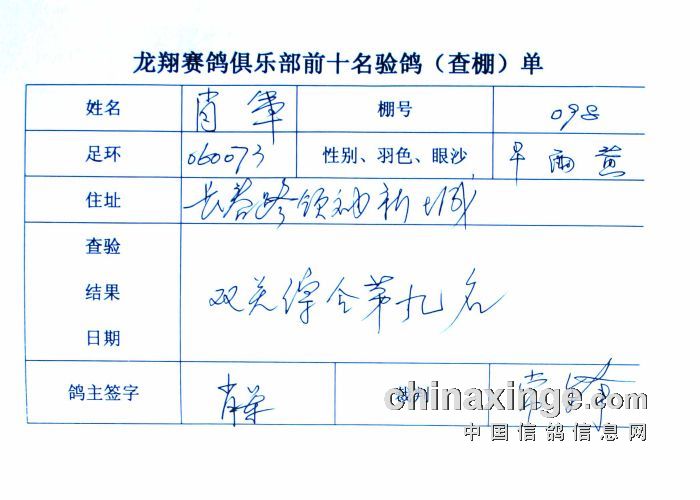 龙翔赛鸽俱乐部前十名验鸽（查棚）单
姓名 肖军 棚号 098
足环 060073 性别、羽色、眼沙 雨 黄
住址 长春路领袖新城
查验
结果
日期
双关综合第九名
鸽主签字 肖军
chinaxinge.com
中国信鸽信息网